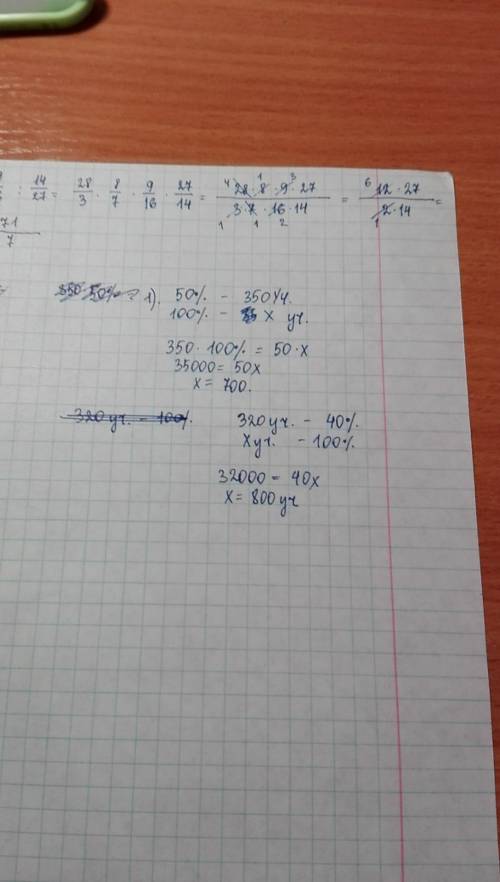 : 14/27 = 28/3 · 8/7 · 9/16 · 27/14 = 28 · 8 · 9 · 27 / 3 · 7 · 16 · 14 = 12 · 27 / 2 · 14 =
71/7
1). 50% - 350 уч.
100% - x уч.
350 · 100% = 50 · x
35000 = 50x
x = 700.
320 уч. - 100%
320 уч. - 40%
x уч. - 100%
32000 = 40x
x = 800 уч